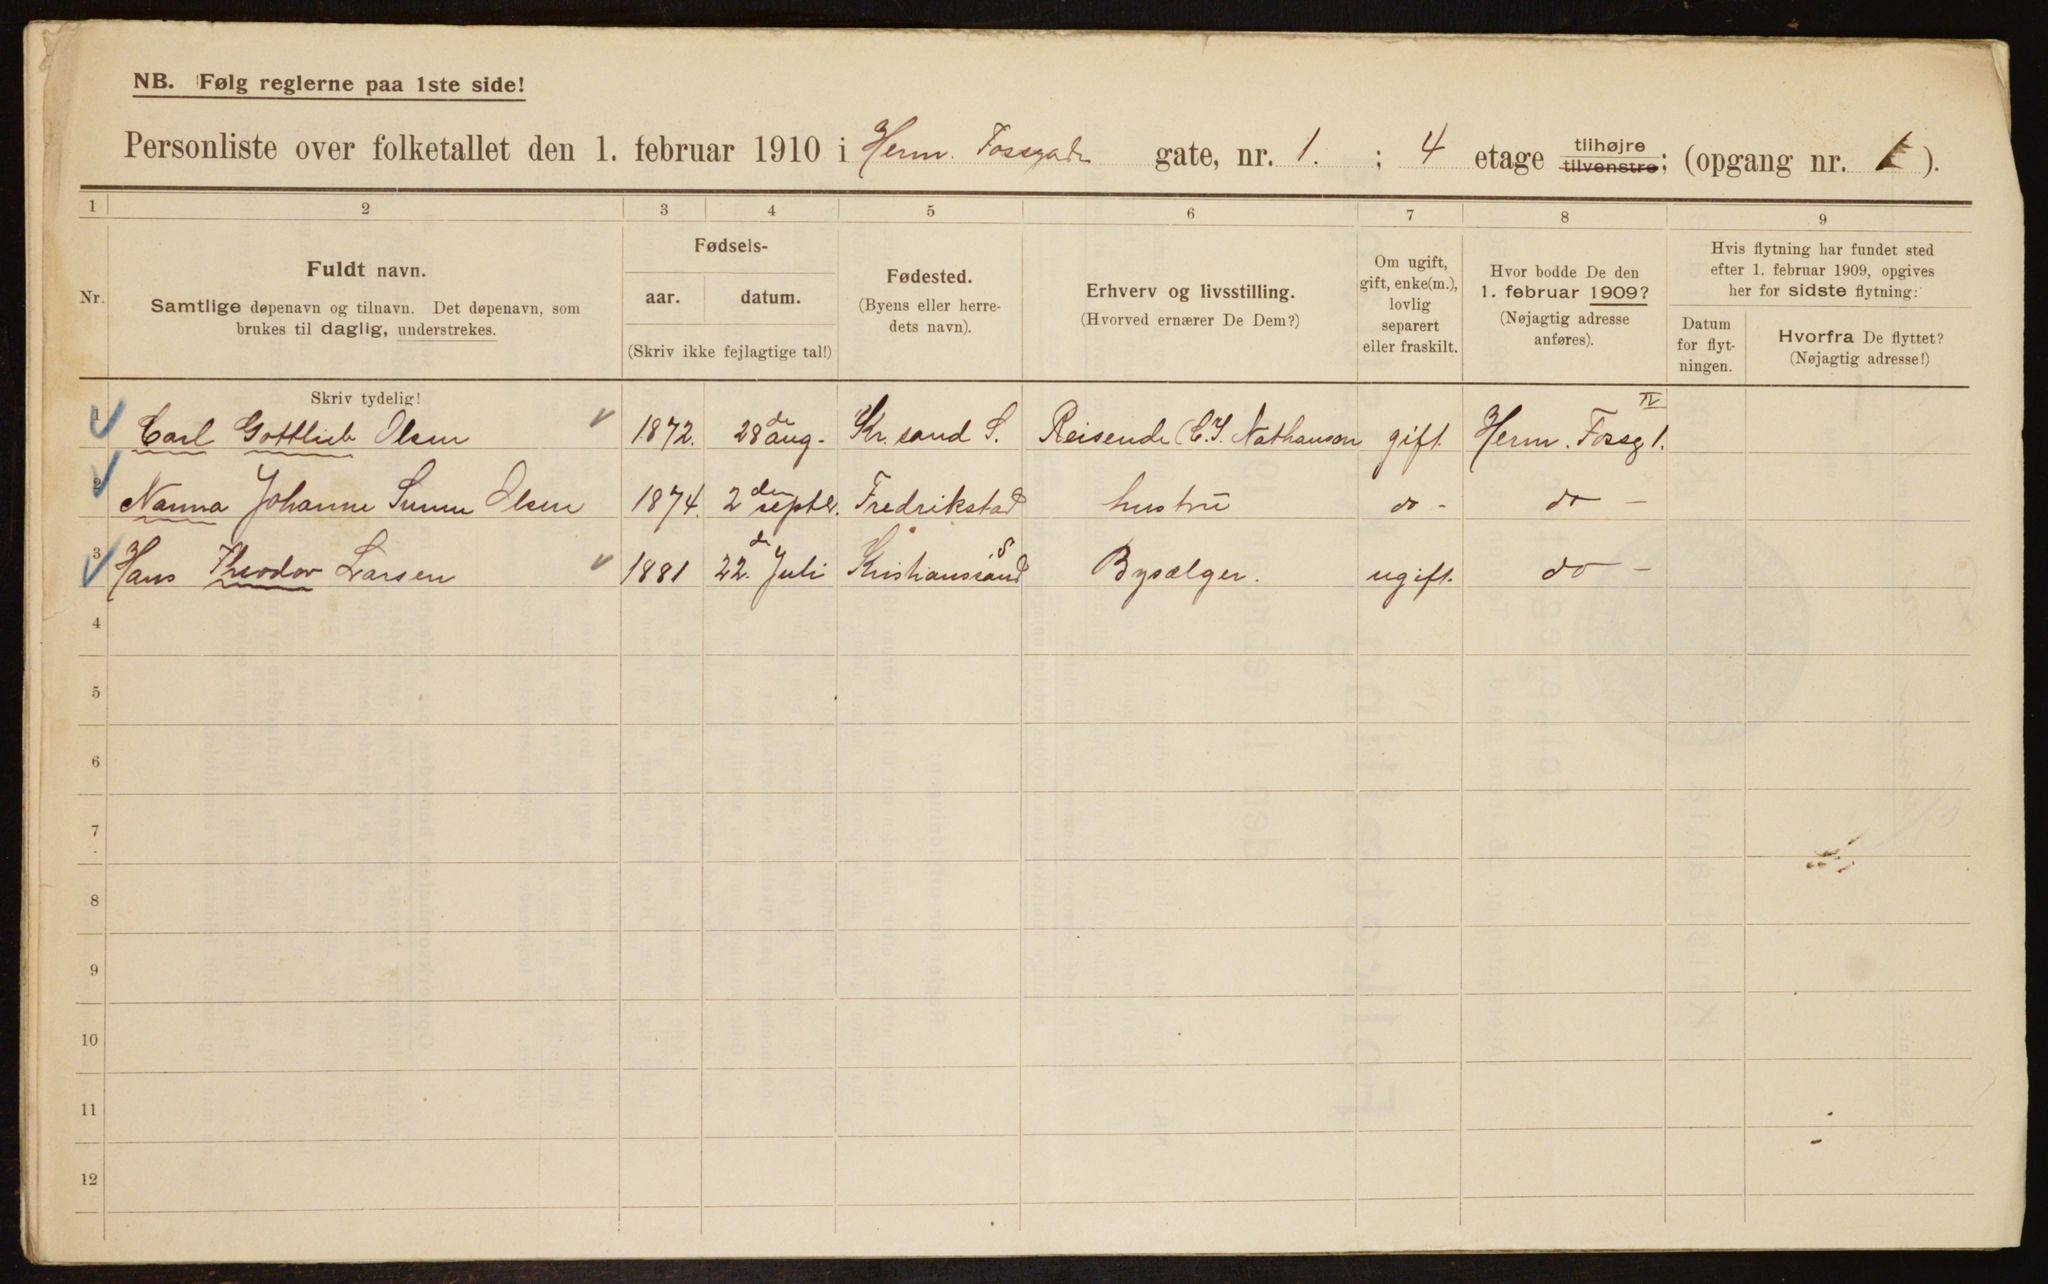 NB. Følg reglerne paa 1ste side!
Personliste over folketallet den 1. februar 1910 i Herm. Fossgade gate, nr. 1. ; 4 etage tilhøjre tilvenstre; (opgang nr. 1).
1 2 3 4 5 6 7 8 9
Nr.
Fuldt navn.
Samtlige døpenavn og tilnavn. Det døpenavn, som
brukes til daglig, understrekes.
Skriv tydelig!
Fødsels-
aar. datum.
(Skriv ikke fejlagtige tal!)
Fødested.
(Byens eller herre-
dets navn).
Erhverv og livsstilling.
(Hvorved ernærer De Dem?)
Om ugift,
gift, enke(m.),
lovlig
separert
eller fraskilt.
Hvor bodde De den
1. februar 1909?
(Nøjagtig adresse
anføres).
Hvis flytning har fundet sted
efter 1. februar 1909, opgives
her for sidste flytning:
Datum
for flyt-
ningen.
Hvorfra De flyttet?
(Nøjagtig adresse!)
1 Carl Gottlieb Olsen 1872. 28de aug. Kr.sand S. Reisende (C.I. Nathanson gift Herm. Fossg 1. IV
2 Nanna Johanne Olsen 1874. 2den septbr. Fredrikstad hustru do - do -
3 Hans Theodor Larsen 1881 22.de Juli Kristianssand S Bysælger. ugift. do -
4
5
6
7
8
9
10
11
12